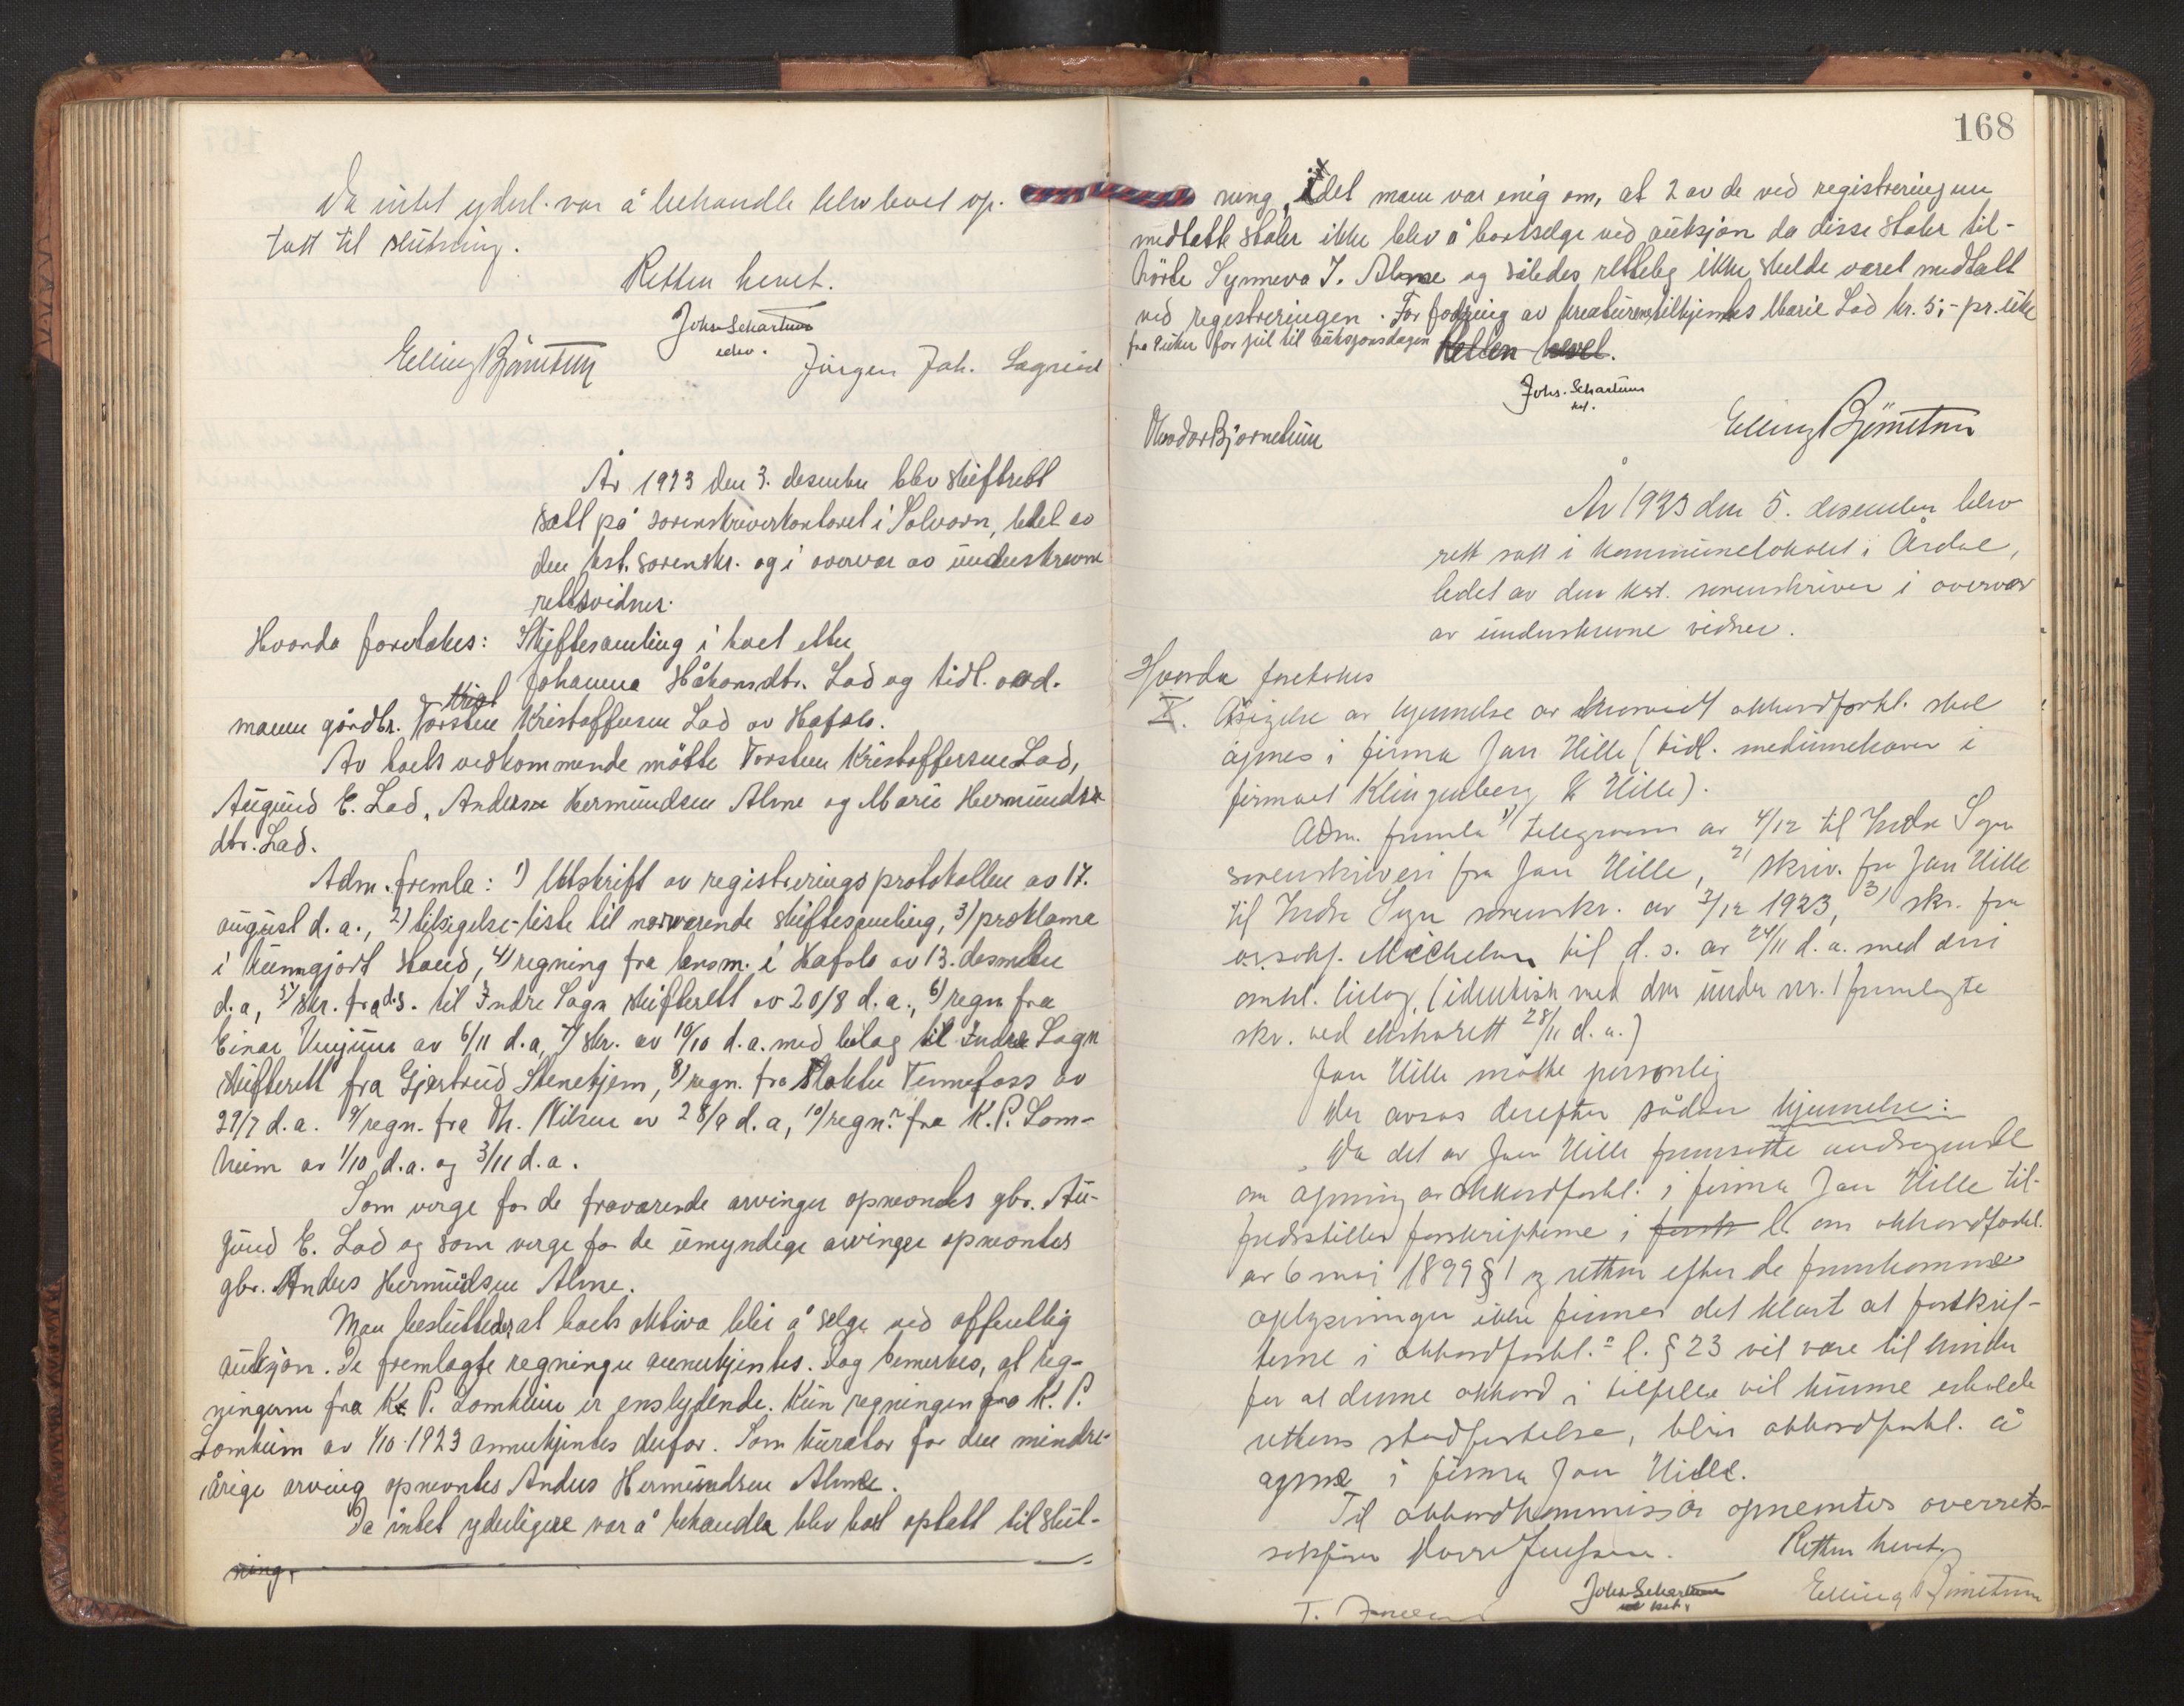 Da intet yderl. var å behandle blev boet op-
tatt til slutning.
Retten hevet.
Johs. Schartum
Elling Bjørnetun
Jørgen Joh.
År 1923 den 3. desember blev skifterett
satt på sorenskriverkontoret i Solvorn, ledet av
den kst. sorenskr. og i overvær av underskrevne
rettsvidner.
Hvorda foretokes: Skiftesamling i boet etter
Johanna Håkonsdtr. Lad og tidl. avd.
mann gårdbr. Torsten Kristoffersen Lad av Hafslo.
Av boets vedkommende møtte Torsten Kristoffersen Lad,
Augund E. Lad, Anders Hermundsen Alme og Marie Hermunds-
dtr. Lad.
Adm. fremla: 1) Utskrift av registreringsprotokollen av 17.
august d.a., 2) tilsigelse-liste til nærværende skiftesamling, 3) proklama
i Kunngjort Haud, 4) regning fra lensm. i Hafslo av 13. desember
d.a, 5) skr. fra d.s. til Indre Sogn skifterett av 20/8 d.a., 6) regn fra
Einar av 6/11 d.a, 7) skr. av 10/10 d.a. med bilag til Indre Sogn
skifterett fra Gjertrud Stenehjem, 8) regn. fra Tennefoss av
27/7 d.a. 9) regn. fra Th. Nilsen av 28/9 d.a, 10) regn. fra K. P. Lom-
heim av 1/10 d.a. og 3/11 d.a.
Som verge for de fraværende arvinger opnevntes gbr. Au-
gund E. Lad og som verge for de umyndige arvinger opnevntes
gbr. Anders Hermundsen Alme.
Man besluttedes at boets aktiva blir å selge ved offentlig
auksjon. De fremlagte regninger annerkjentes. Dog bemerkes, at reg-
ningerne fra K. P. Lomheim er enslydende. Kun regningen fra K. P.
Lomheim av 1/10-1923 annerkjentes derfor. Som kurator for den mindre-
årige arving opnevntes Anders Hermundsen Alme.
Da intet yderligere var å behandle blev boet optatt til slut-
ning.
168
ning, idet man var enig om, at 2 av de ved registreringen
medtatte stoler ikke blev å bortselge ved auksjon da disse stoler til-
hørte Synneva J. Alme og således rettelig ikke skulde været medtatt
ved registreringen. For foring av kreaturene tilkjentes Marie Lad kr. 5,- pr. uke
fra 2 uker før jul til auksjonsdagen Retten hevet.
Johs. Schartum
kst.
Teodor Bjørnetun
Elling Bjørnetun
År 1923 den 5. desember blev
rett satt i kommunelokalet i Årdal,
ledet av den kst. sorenskriver i overvær
av underskrevne vidner.
Hvorda foretokes
I. Avsigelse av kjennelse av hvorvidt akkordforhl. skal
åpnes i firma Jan Hille (tidl. medinnehaver i
firmaet Klingenberg & Hille).
Adm. fremla 1) telegram av 4/12 til Indre Sogn
sorenskriveri fra Jan Hille, 2) skriv. fra Jan Hille
til Indre Sogn sorenskr. av 3/12 1923, 3) skr. fra
o.r.sakf. Michelsen til d.s. av 24/11 d.a. med deri
omhl. bilag, (identisk med den under nr. 1 fremlagte
skr. ved ekstrarett 28/11 d.a.)
Jan Hille møtte personlig
Der avsas derefter sådan kjennelse:
Da det av Jan Hille fremsatte andragende
om åpning av akkordforhl. i firma Jan Hille til-
fredsstiller forskrifterne i forsk l. om akkordforhl.
av 6 mai 1899 § 1 og retten efter de fremkomne
oplysninger ikke finner det klart at forskrif-
terne i akkordforhl.s l. § 23 vil være til hinder
for at denne akkord i tilfelle vil kunne erholde
rettens stadfestelse, blir akkordforhl. å
åpne i firma Jan Hille.
Til akkordkommissær opnevntes overrets-
sakfører Jenssen. Retten hevet.
Johs. Schartum
kst.
Elling Bjørnetun